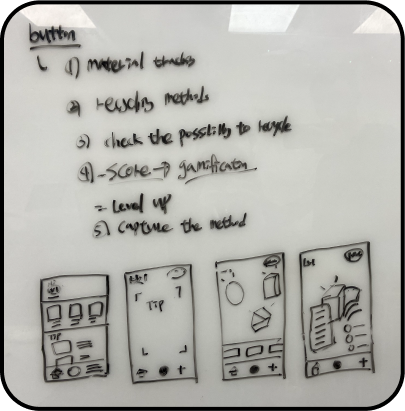 button
① material tracks
② recycling methods
③ check the possibility to recycle
④ - Score → gamification
= Level up
⑤ Capture the method
Tip
Tip